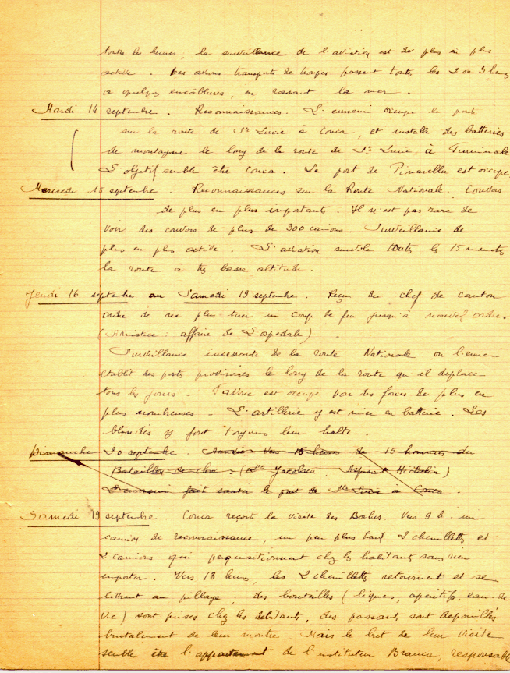 toutes les heures, la surveillance de l'aviation est de plus en plus
active. Des avions transports de troupes passent toutes les 2 ou 3 heures
à quelques encâblures, en rasant la mer.
Mardi 14 septembre. Reconnaissances. L'ennemi occupe le pont
sur la route de Ste Lucie à Conca, et installe des batteries
de montagne le long de la route de Ste Lucie à
L'objectif semble être Conca. Le port de Pinarellu est occupé
Mercredi 15 septembre. Reconnaissances sur la Route Nationale. Convois
de plus en plus important. Il n'est pas rare de
voir des convois de plus de 200 camions. Surveillance de
plus en plus active. L'aviation survole toutes les 15 minutes
la route à très basse altitude.
Jeudi 16 septembre au Samedi 19 septembre. Reçu du chef de canton
ordre de ne plus tirer un coup de feu jusqu'à nouvel ordre.
( : affaire de l'ospedale)
Surveillance incessante de la route Nationale où l'ennemi
établit des postes provisoires le long de la route qu'il déplace
tous les jours. est occupé par des forces de plus en
plus nombreuses. L'artillerie y est mise en batterie. Les
blindés y font toujours leur halte.
Dimanche 20 septembre. 15 hommes du
Bataillon de choc : (Lt Jacobsen.
le pont de Ste Lucie à Conca.
Samedi 19 septembre. Conca reçoit la visite des Boches. Vers 9 h. un
camion de reconnaissance, un peu plus tard 2 chenillettes et
2 camions qui perquisitionnent chez les habitants sans rien
emporter. Vers 13 heures, les 2 chenillettes retournent et se
livrent au pillage, des bouteilles (liqueurs, apéritifs, eau-de-
vie) sont prises chez les habitants, des passants sont dépouillés
brutalement de leur montre. Mais le but de leur visite
semble être l'appartement de l'instituteur responsable